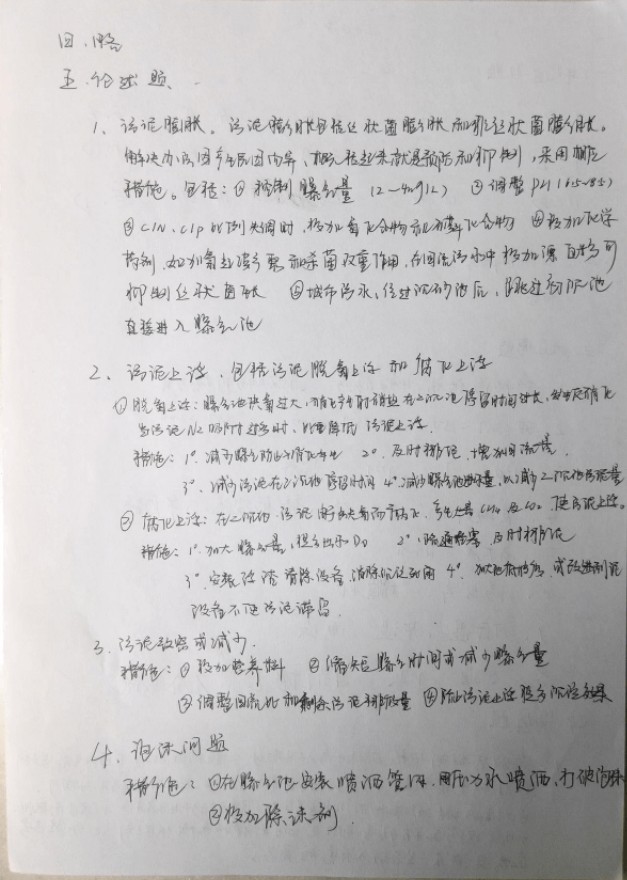 四、略
五、论述题、
1、污泥膨胀。污泥膨胀包括丝状菌膨胀和非丝状菌膨胀。
解决办法因产生原因而异,概括起来就是预防和抑制,采用相应
措施。包括:① 控制曝气量 (2-4mg/L) ② 调整PH (6.5-8.5)
③ C/N、C/P 比例失调时,投加氮化合物或磷化合物 ④ 投加化学
药剂,如加氯起凝聚和杀菌双重作用,在回流污泥中投加漂白粉可
抑制丝状菌 ⑤ 城市污水,经过沉砂池后,跳过初沉池
直接进入曝气池
2、污泥上浮,包括污泥脱氮上浮和腐化上浮
① 脱氮上浮:曝气池供氧过大,在二沉池停留时间过长,发生反硝化
污泥上浮.
措施:1° 减少曝气防止硝化产生 2° 及时排泥,增加回流量.
3°. 减少污泥在二沉池停留时间 4° 减少曝气池进水量,以减少二沉池污泥量
② 腐化上浮:在二沉池污泥缺氧而腐化,产生大量CH4及CO2 使污泥上浮.
措施:1° 加大曝气量,提高出水DO 2° 疏通堵塞,及时排泥
3° 安装浮渣清除设备,消除沉淀池死角 4° 加大池底坡度,或改进刮泥
设备不使污泥滞留.
3、污泥致密或减少.
措施:① 投加营养料 ② 缩短曝气时间或减少曝气量
③ 调整回流比和剩余污泥排放量 ④ 防止污泥上浮 提高沉淀效果
4、泡沫问题
措施:① 在曝气池安装喷洒管网,用压力水喷洒,打破泡沫
② 投加除沫剂.